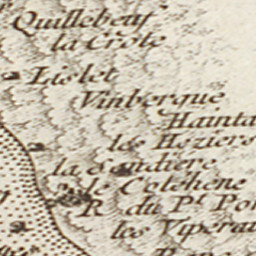 Quillebeuf
la Crôte
Lislet
Vinberque
Hainta
les Heziers
la
le Colehene
R. du Pt. Por
les Viperau